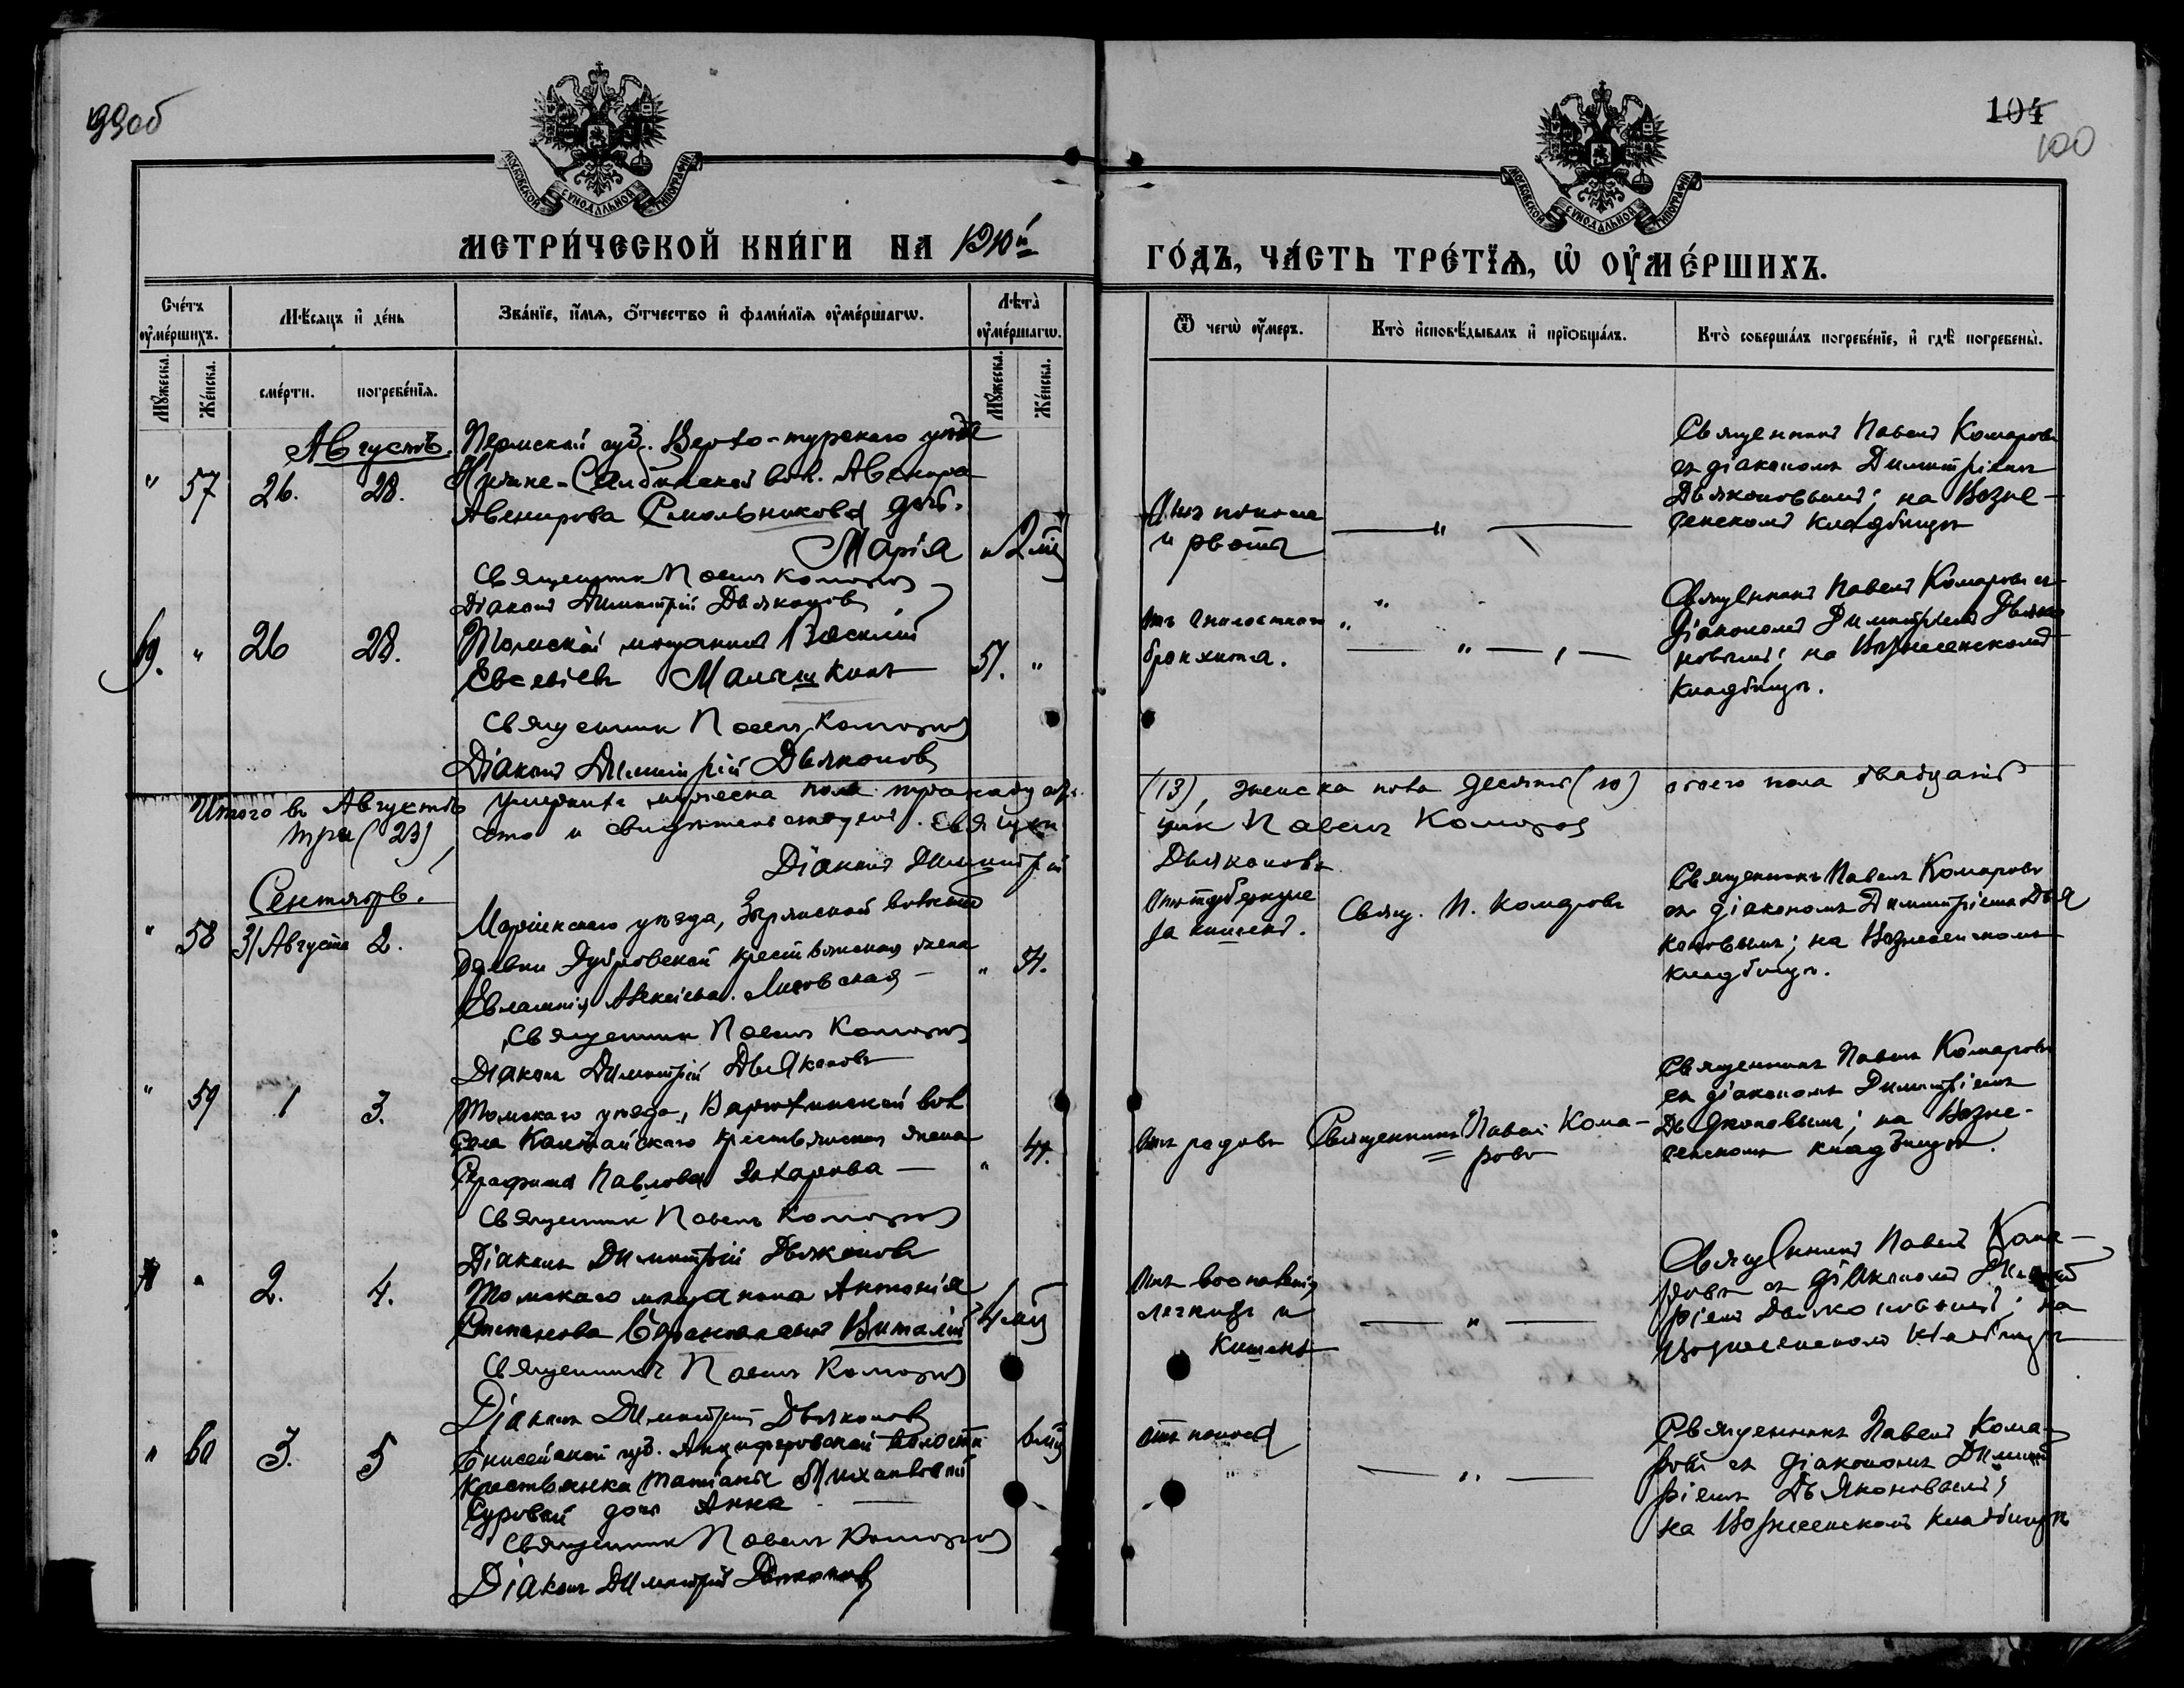 99об
104
100
МОСКОВСКОЙ СѴНОДАЛЬНОЙ ТИПОГРАФІИ
МОСКОВСКОЙ СѴНОДАЛЬНОЙ ТИПОГРАФІИ
МЕТРИ́ЧЕСКОЙ КНИ́ГИ НА 1910й
ГО́ДЪ, ЧА́СТЬ ТРЕ́ТЇѦ, Ѡ҆ ОУ҆МЕ́РШИХЪ.
Счéтъ оу҆мéршихъ.
Мѣ́сяцъ и҆ де́нь
Зва́нїе, и҆́мѧ, ѻ҆́тчество и҆ фами́лїѧ оу҆ме́ршагѡ.
Лѣта̀ оу҆ме́ршагѡ.
Ѿ чегѡ̀ оу҆́меръ.
Кто̀ и҆сповѣ́дывалъ и҆ прїѻбща́лъ.
Кто̀ соверша́лъ погребе́нїе, и҆ гдѣ̀ погребены̀.
Мꙋ́жеска.
Же́нска.
сме́рти.
погребе́нїѧ.
Мꙋ́жеска.
Же́нска.
Августъ.
Пермской губ. Верхо-турскаго уѣзда
" 57 26. 28.
Салдинской вол. Авенира
Авенирова Смольникова дочь.
Марія " 2 мѣ
Отъ поноса
и рвоты
— " —
Священникъ Павелъ Комаровъ
съ діакономъ Димитріемъ
Дьяконовымъ; на Возне-
сенскомъ кладбищѣ
Священникъ Павелъ Комаровъ
Діаконъ Димитрій Дьяконовъ
69. " 26 28.
Томскій мѣщанинъ Василий
Евсевіевъ Малышкинъ 51. "
Отъ гнилостнаго
бронхита.
— " —
Священникъ Павелъ Комаровъ съ
діакономъ Димитріемъ Дьяко-
новымъ; на Вознесенскомъ
кладбищѣ.
Священникъ Павелъ Комаровъ
Діаконъ Димитрій Дьяконовъ
Итого въ Августѣ умершихъ мужеска пола тринадцать (13), женска пола десять (10) обоего пола двадцать
три (23), Священникъ Павелъ Комаровъ
Діаконъ Димитрій Дьяконовъ
Сентябрь.
" 58 31 Августа 2.
Маріинскаго уѣзда, Зырянской волости
Дервни Дубровской крестьянская жена
Евлампія Алексѣева Лисовская — " 51.
Отъ туберкуле
за кишекъ.
Свящ. П. Комаровъ
Священникъ Павелъ Комаровъ
съ діакономъ Димитріемъ Дья
коновымъ; на Вознесенскомъ
кладбищѣ.
Священникъ Павелъ Комаровъ
Діаконъ Димитрій Дьяконовъ
" 59 1 3.
Томскаго уѣзда, Варюхинской вол
Села Калтайскаго крестьянская жена
Серафима Павлова Захарова — "
Отъ родовъ
Священникъ Павелъ Кома-
ровъ
Священникъ Павелъ Комаровъ
съ діакономъ Димитріемъ
Дьяконовымъ; на Возне-
сенскомъ кладбищѣ.
Священникъ Павелъ Комаровъ
Діаконъ Димитрій Дьяконовъ
70 " 2. 4.
Томскаго мѣщанина Антонія
Степанова сынъ Виталій 4 мѣ
Отъ воспаленія
легкихъ и
кишекъ
— " —
Священникъ Павелъ Кома-
ровъ съ діакономъ Димит
ріемъ Дьяконовымъ; на
Вознесенскомъ кладбищѣ
Священникъ Павелъ Комаровъ
Діаконъ Димитрій Дьяконовъ
" 60 3. 5
Енисейской губ. Анциферовской волости
крестьянки Татіаны Михайловой
Суровой дочь Анна 6 мѣ
Отъ поноса
— " —
Священникъ Павелъ Кома-
ровъ съ діакономъ Димит
ріемъ Дьяконовымъ;
на Вознесенскомъ кладбищѣ
Священникъ Павелъ Комаровъ
Діаконъ Димитрій Дьяконовъ